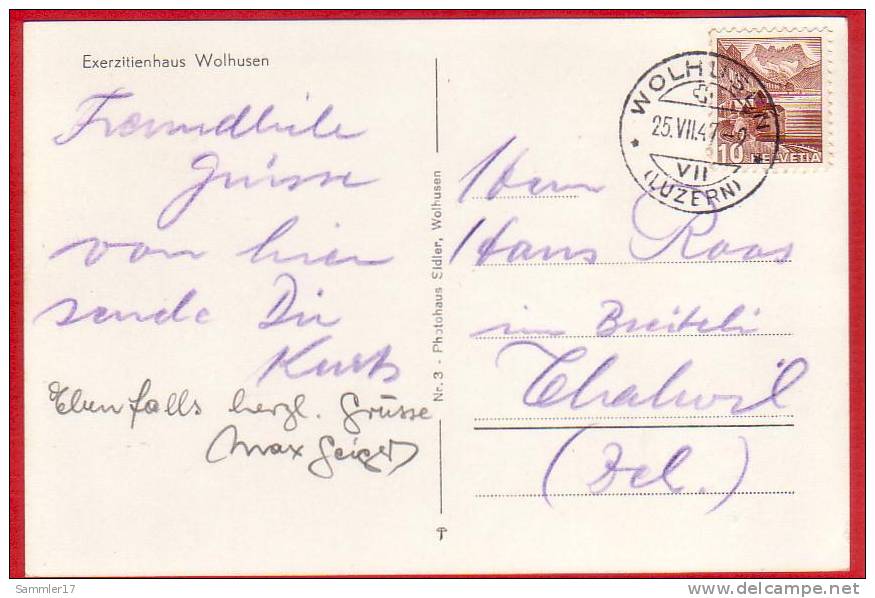 Exerzitienhaus Wolhusen
Freundliche
Grüsse
von hier
sende Dir
Kurt
Ebenfalls herzl. Grüsse
Max Geiger
Nr. 3 - Photohaus Sidler, Wolhusen
WOLHUSEN
25.VII.47
VII
(LUZERN)
10 HELVETIA
Herrn
Hans Roos
im Breiteli
Thalwil
Sammler17
delcampe.net